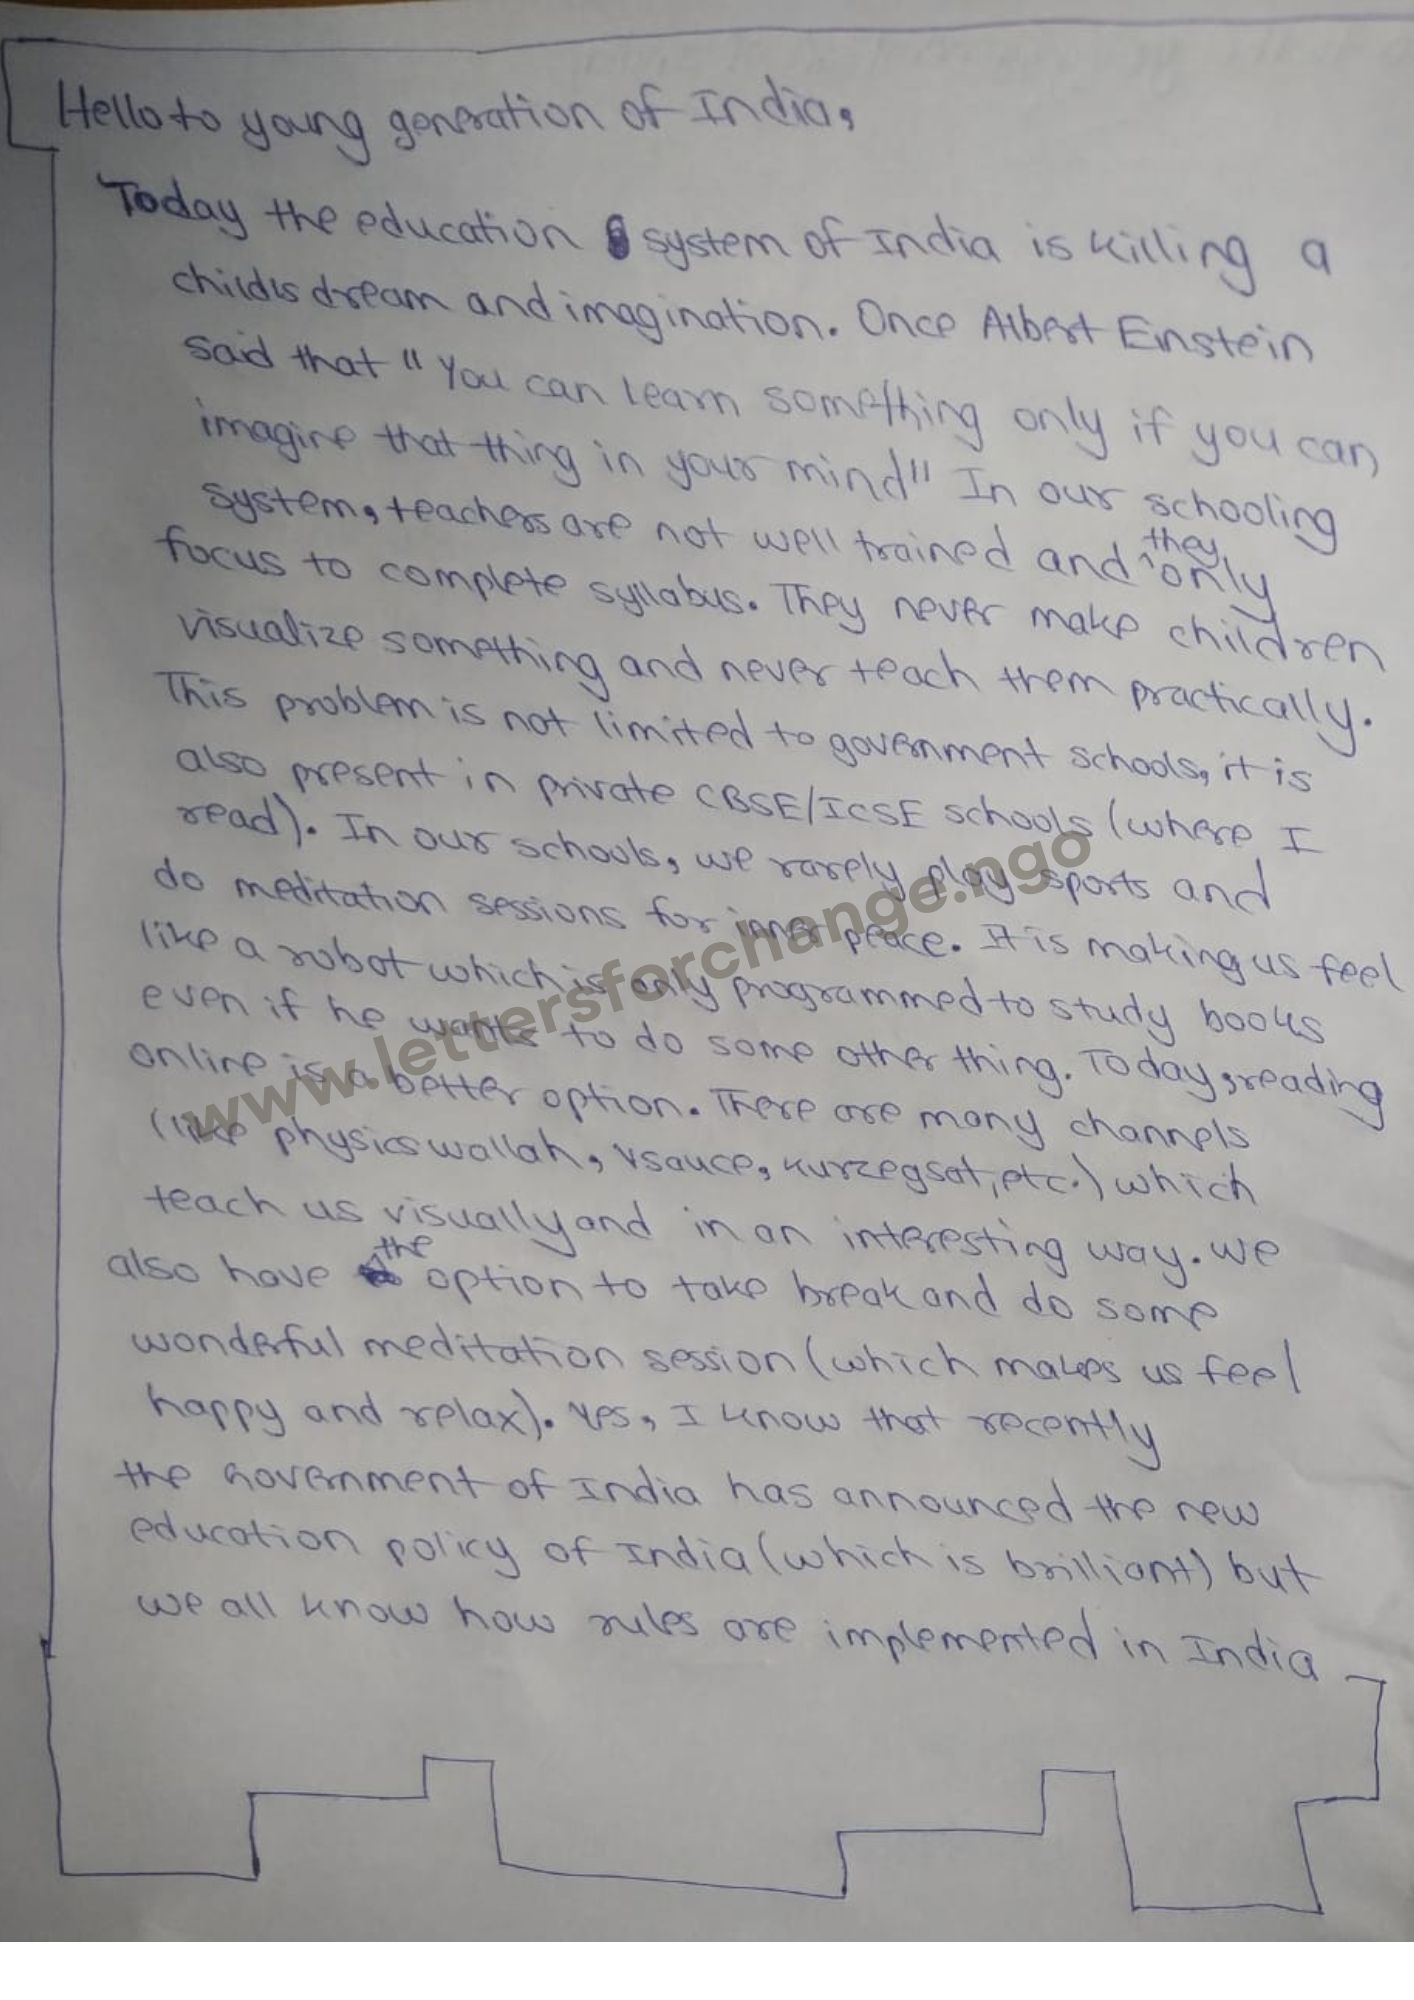 Hello to young generation of India,
Today the education system of India is killing a
child's dream and imagination. Once Albert Einstein
said that "You can learn something only if you can
imagine that thing in your mind" In our schooling
system, teachers are not well trained and they only
focus to complete syllabus. They never make children
visualize something and never teach them practically.
This problem is not limited to government schools, it is
also present in private CBSE/ICSE schools (where I
read). In our schools, we rarely play sports and
do meditation sessions for inner peace. It is making us feel
like a robot which is only programmed to study books
even if he wants to do some other thing. Today, reading
online is a better option. There are many channels
(like physics wallah, Vsauce, kurzegsat, etc.) which
teach us visually and in an interesting way. We
also have the option to take break and do some
wonderful meditation session (which makes us feel
happy and relax). Yes, I know that recently
the Government of India has announced the new
education policy of India (which is brilliant) but
we all know how rules are implemented in India
www.lettersforchange.ngo